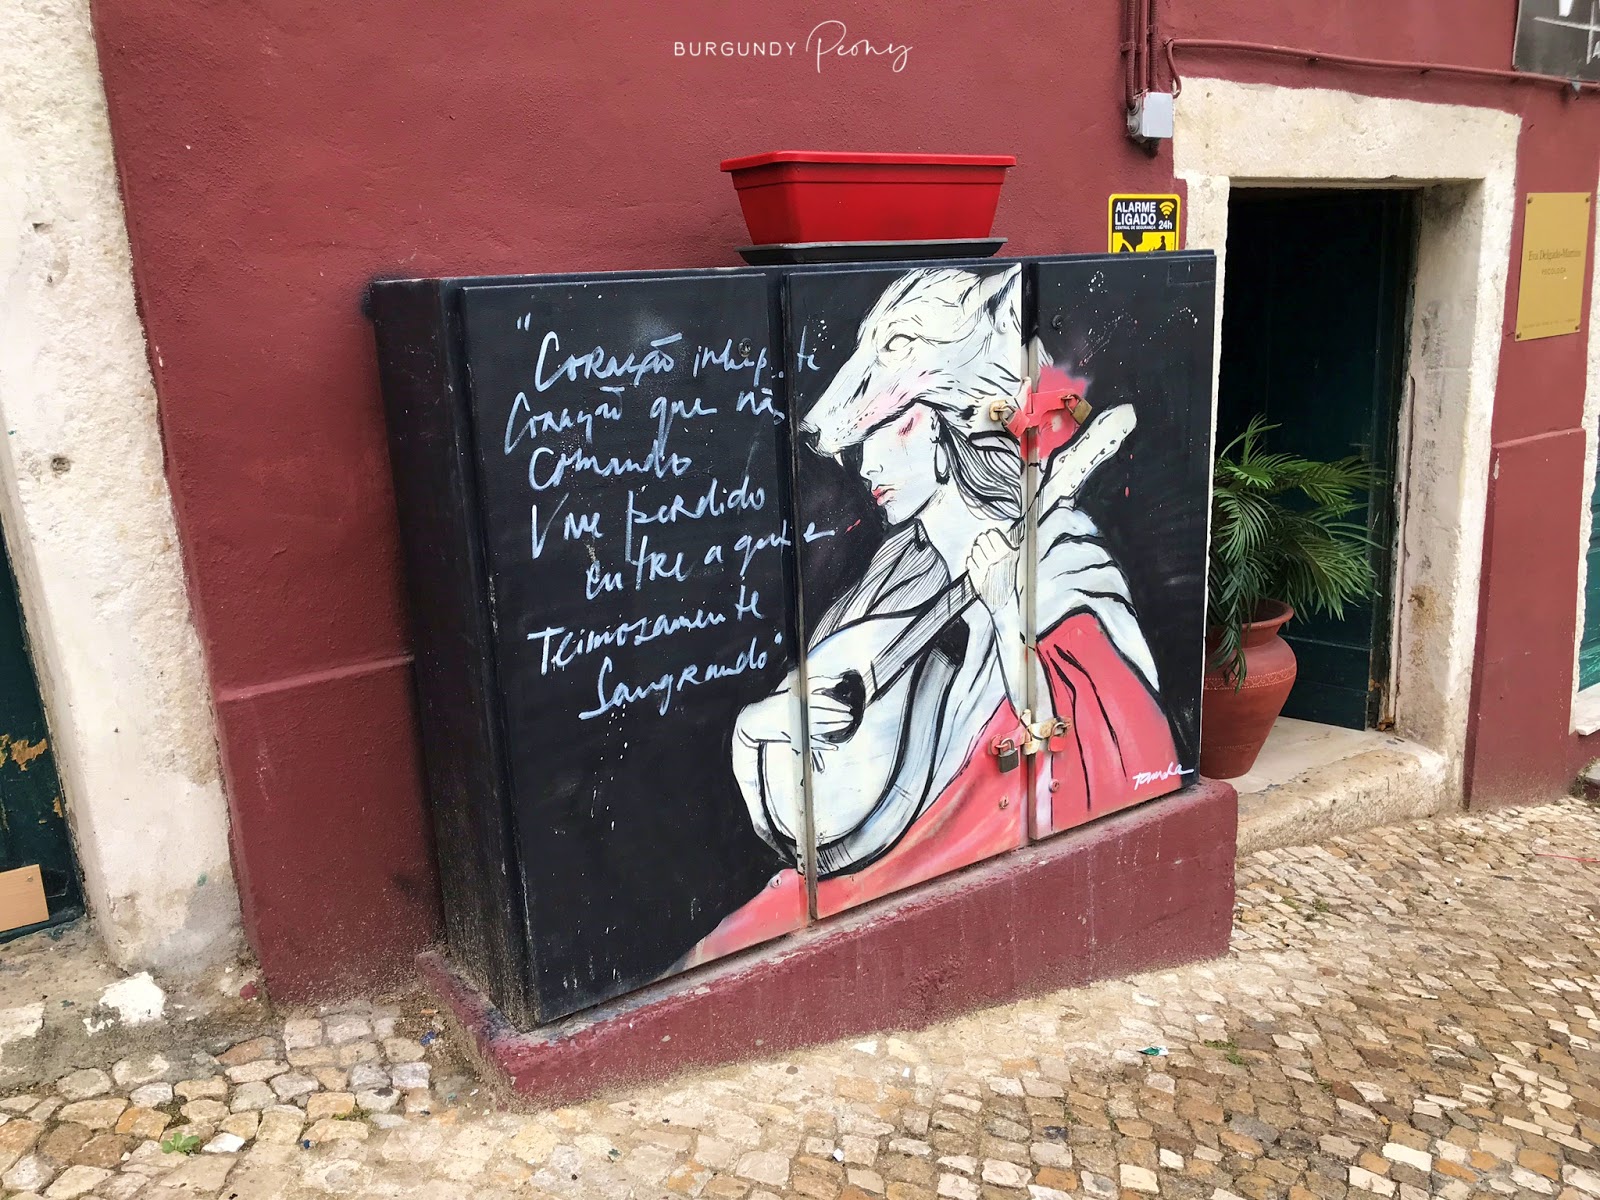 BURGUNDY Peony
ALARME
LIGADO
CENTRAL DE SEGURANÇA 24h
"
Coração indep ti
Coração que não
comando
Vive perdido
entre a gente
Teimosamente
Sangrando"
Tamara
Eva Delgado-Martins
PSICÓLOGA